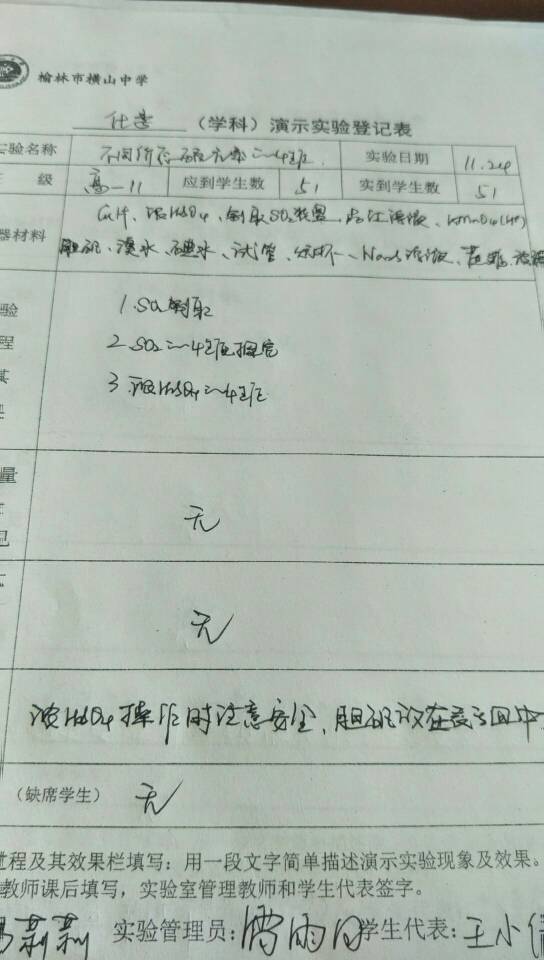 榆林市横山中学
化学 （学科）演示实验登记表
实验名称 不同价态硫元素的性质 实验日期 11.24
级 高一11 应到学生数 51 实到学生数 51
器材料 浓H₂SO₄、制取SO₂装置、品红溶液、KMnO₄(H⁺)
胆矾、溴水、碘水、试管、烧杯、Na₂S溶液、蔗糖、
验 1.SO₂制取
程 2.SO₂的性质探究
其 3.浓H₂SO₄的性质
量
无
见
无
浓H₂SO₄操作时注意安全、胆矾放在
（缺席学生） 无
过程及其效果栏填写：用一段文字简单描述演示实验现象及效果。
教师课后填写，实验室管理教师和学生代表签字。
莉莉 实验管理员： 学生代表：王小